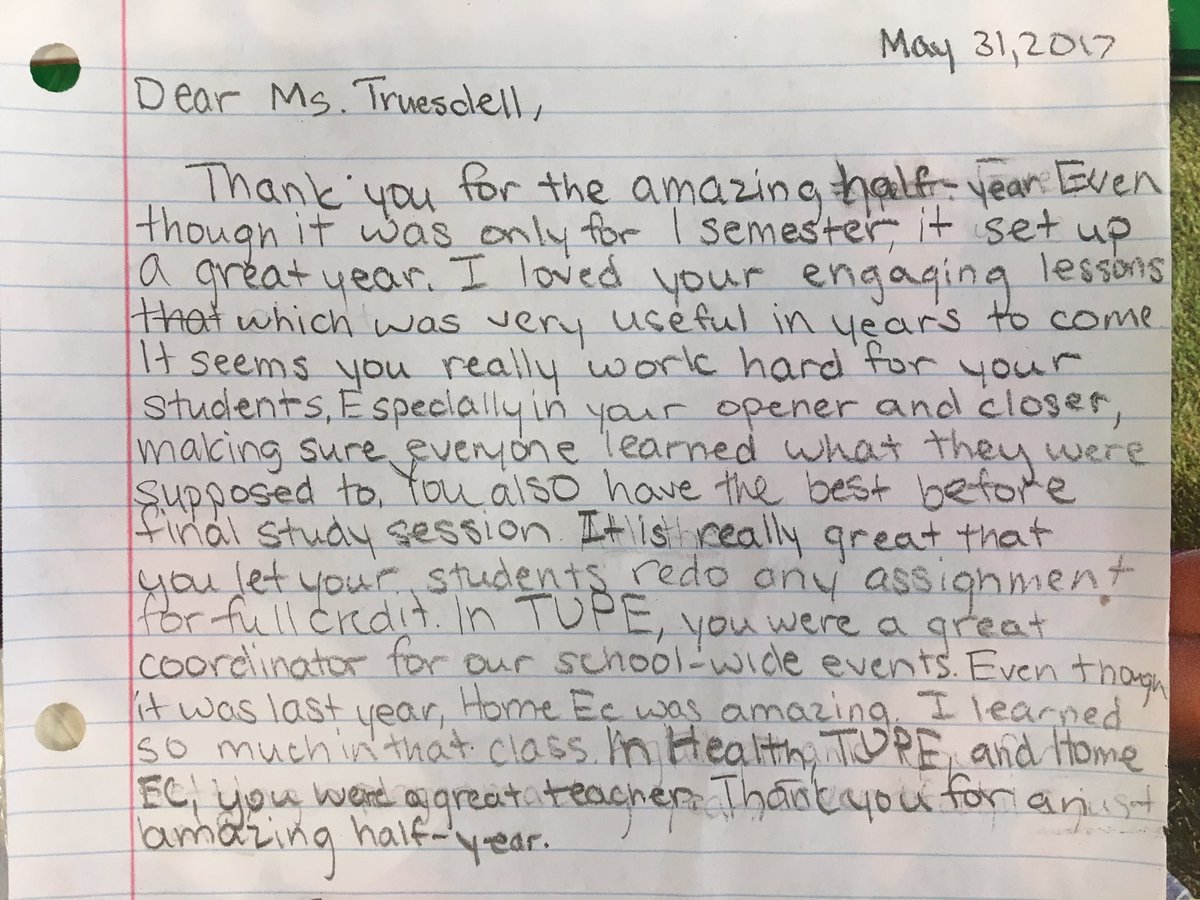 May 31, 2017
Dear Ms. Truesdell,
Thank you for the amazing half-year Even
though it was only for 1 semester, it set up
a great year. I loved your engaging lessons
that which was very useful in years to come
It seems you really work hard for your
students, Especially in your opener and closer,
making sure everyone learned what they were
supposed to. You also have the best before
final study session. It is really great that
you let your students redo any assignment
for full credit. In TUPE, you were a great
coordinator for our school-wide events. Even though
it was last year, Home Ec was amazing. I learned
so much in that class. In Health, TUPE, and Home
EC, you were a great teacher. Thank you for an
amazing half-year.